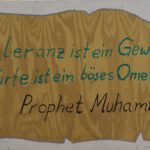 oleranz ist ein Gew
ärte ist ein böses Omen
Prophet Muham